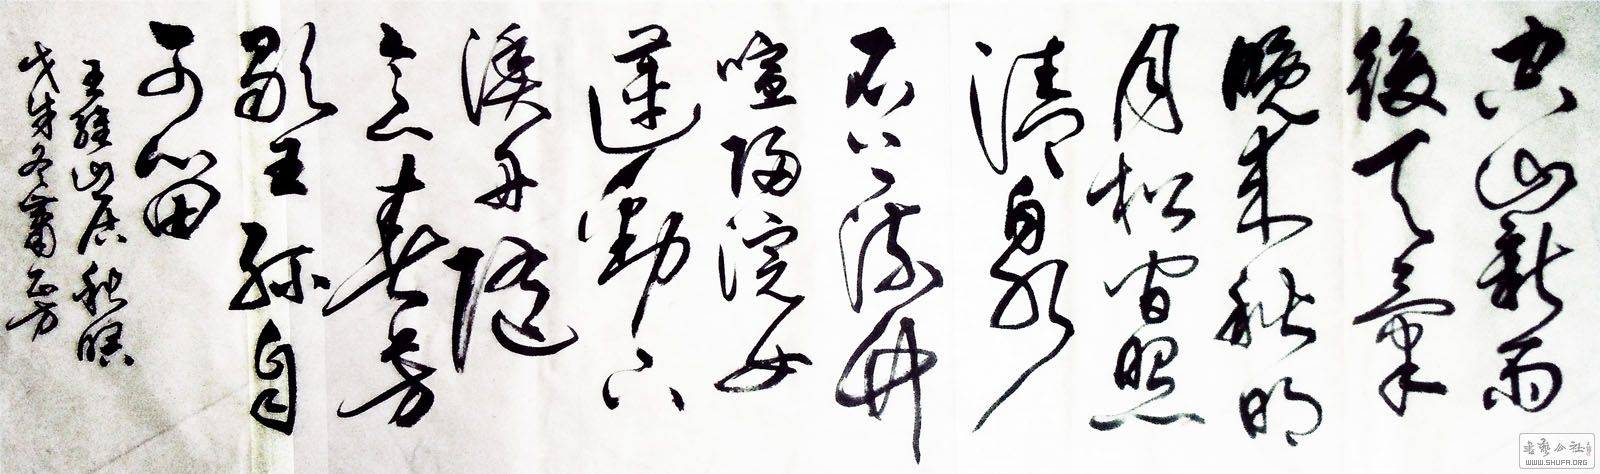 空山新雨
後天氣
晚来秋明
月松间照
清泉
石上流竹
喧归浣女
蓮動下
漁舟随
意春芳
歇王孫自
可留
王維山居秋暝
戊戌冬
書藝公社
WWW.SHUFA.ORG